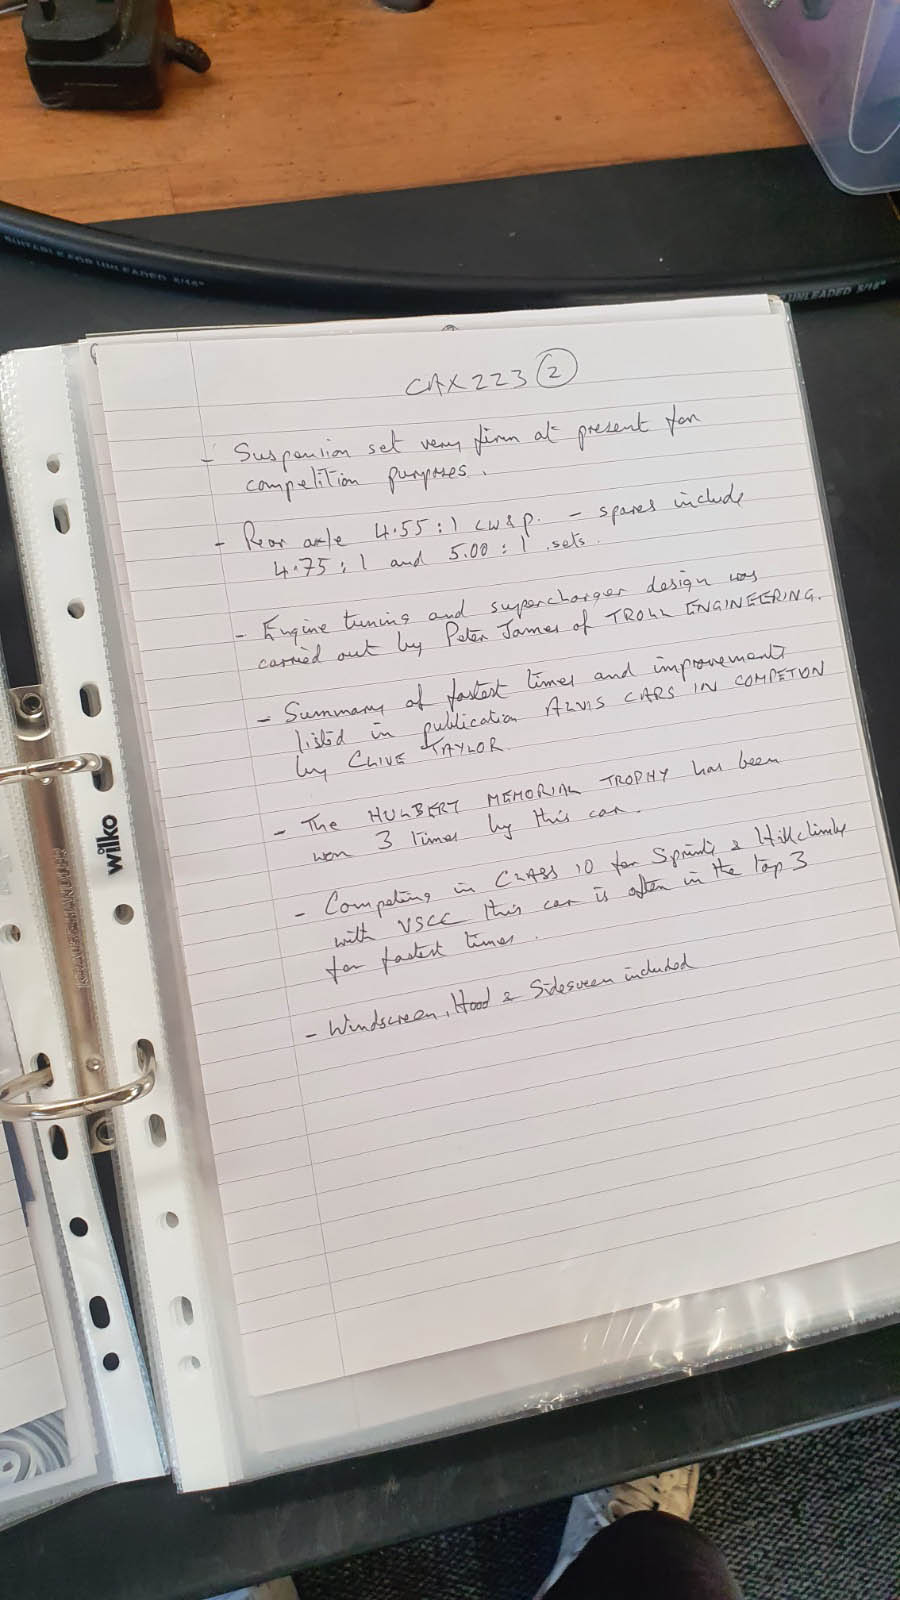 SUITABLE FOR UNLEADED 5/16"
UNLEADED 5/16"
CAX223 ②
- Suspension set very firm at present for
competition purposes.
- Rear axle 4.55:1 cw&p. - spares include
4.75:1 and 5.00:1 sets.
- Engine tuning and supercharger design was
carried out by Peter James of TROLL ENGINEERING.
- Summary of fastest times and improvements
listed in publication ALVIS CARS IN COMPETION
by CLIVE TAYLOR.
- The HULBERT MEMORIAL TROPHY has been
won 3 times by this car.
- Competing in CLASS 10 for Sprints & Hillclimbs
with VSCC this car is often in the top 3
for fastest times.
- Windscreen, Hood & Sidescreen included
wilko